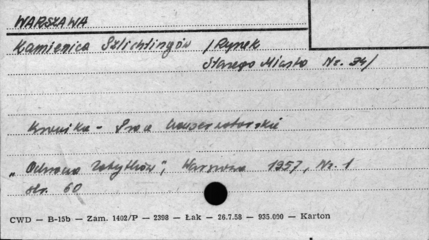 WARSZAWA
Kamienica Szlichtingów /Rynek
Starego Miasta Nr. 34/
Kronika - Prace Konserwatorskie
"Ochrona Zabytków", Warszawa 1957, Nr. 1
str. 60
CWD — B-15b — Zam. 1402/P — 2398 — Łak — 26.7.58 — 935.000 — Karton